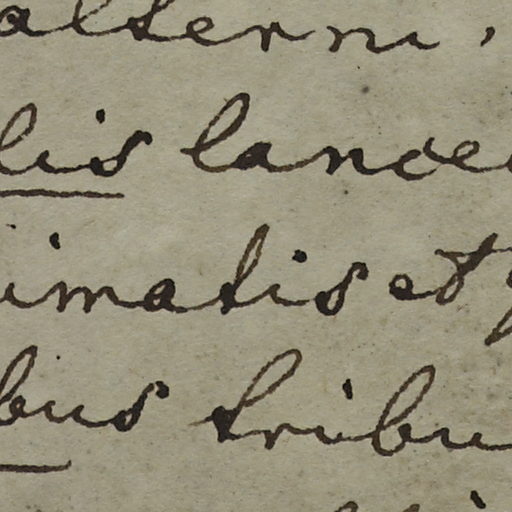 alterni,
lis lance
imatis et
bus tribu